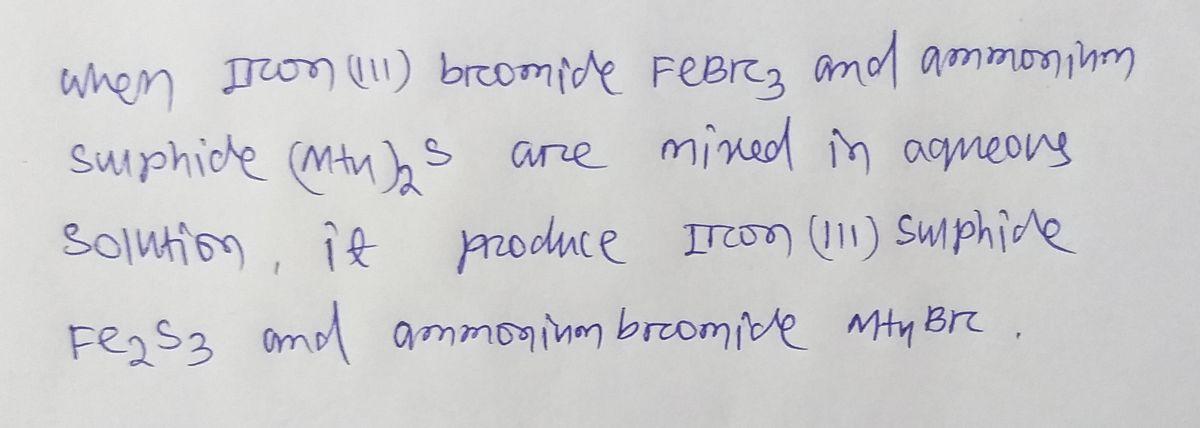 when Iron (III) bromide FeBr3 and ammonium
sulphide (NH4)2S are mixed in aqueous
solution, it produce Iron (III) sulphide
Fe2S3 and ammonium bromide NH4Br.